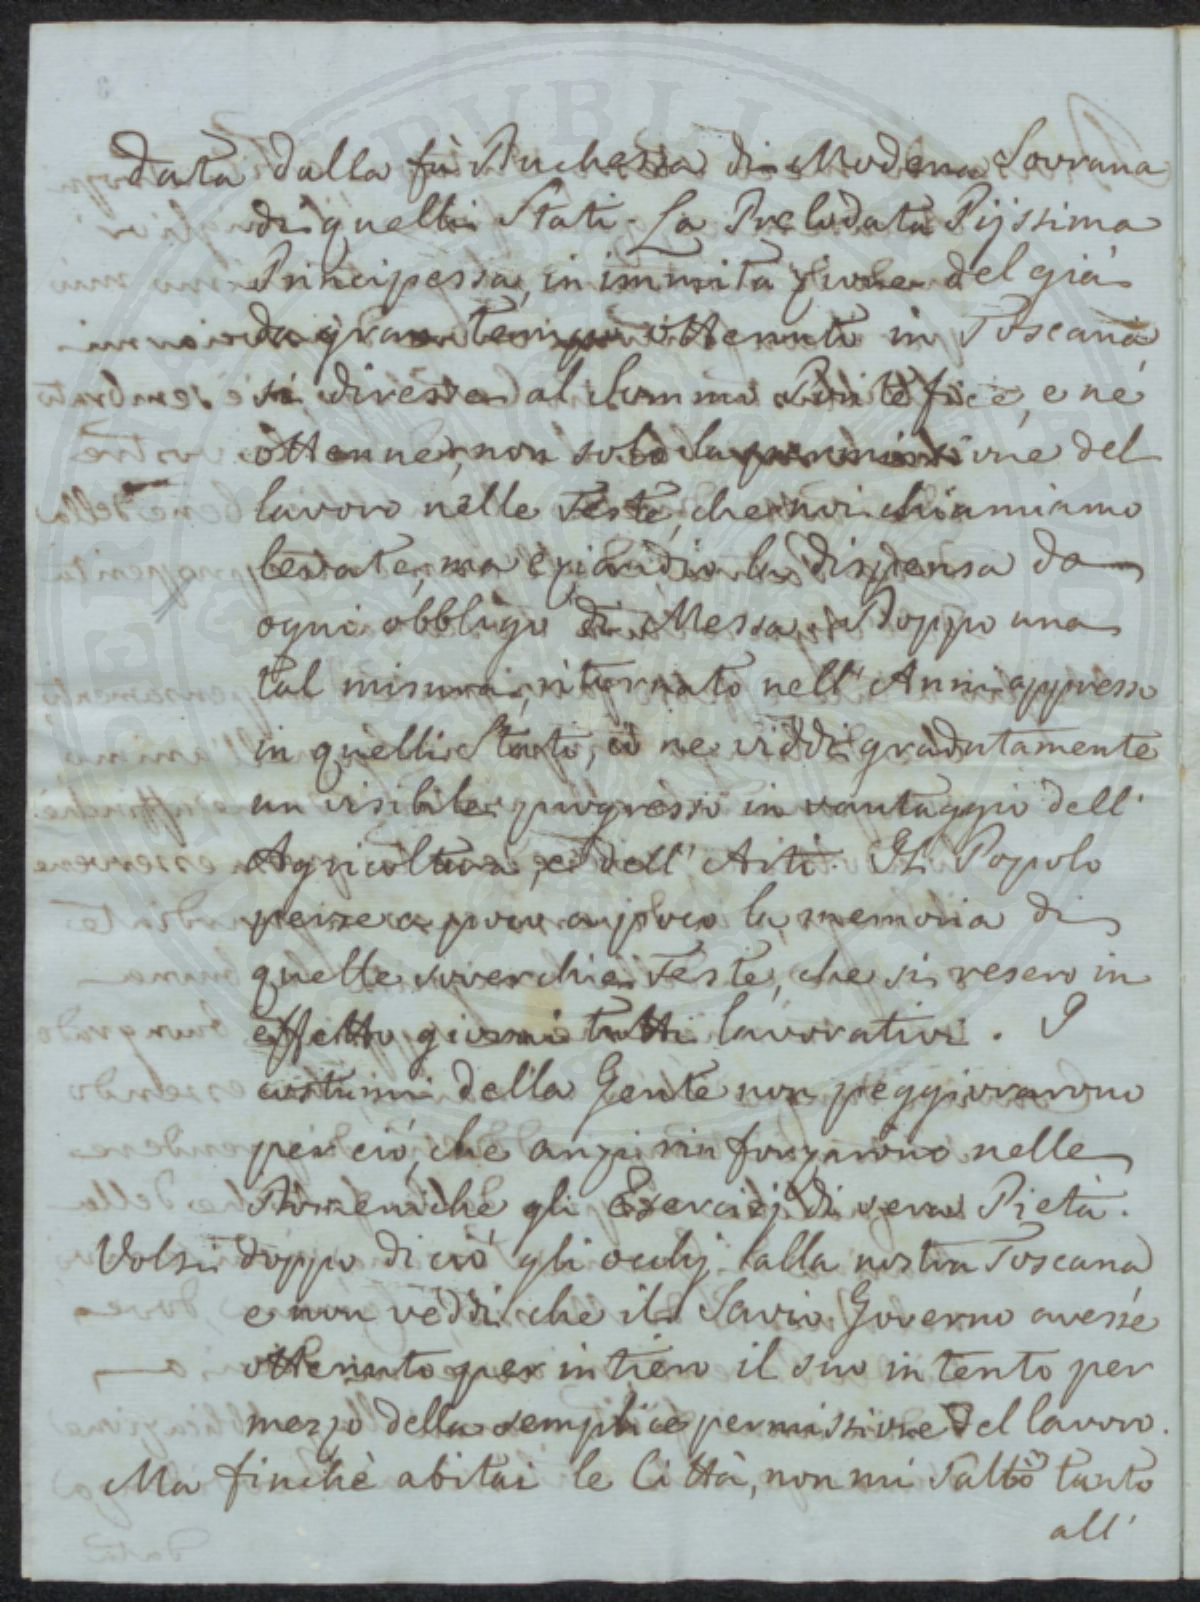 data dalla fù Duchessa di Modena Sovrana
di quelli Stati. La Prelodata Pijssima
Principessa, in immitazione del già
da gran tempo ottenuto in Toscana,
si diresse al Sommo Pontefice, e né
ottenne, non solo la permissione del
lavoro nelle Feste, che noi chiamiamo
levate, ma eziandio la dispensa da
ogni obbligo di Messa. Doppo una
tal misura, ritornato nell' Anni appresso
in quelli Stati, io ne viddi gradatamente
un visibile progresso in vantaggio dell'
Agricoltura, e dell' Arti. Il Popolo
perse a poco a poco la memoria di
quelle soverchie Feste, che si resero in
effetto giorni tutti lavorativi. I
costumi della Gente non peggiorarono
per ciò, che anzi rinforzarono nelle
Domeniche gli Esercizj di vera Pietà.
Volsi doppo di ciò gli occhj alla nostra Toscana
e non veddi che il Savio Governo avesse
ottenuto per intiero il suo intento per
mezzo della semplice permissione del lavoro.
Ma finchè abitai le Città, non mi saltò tanto
all'